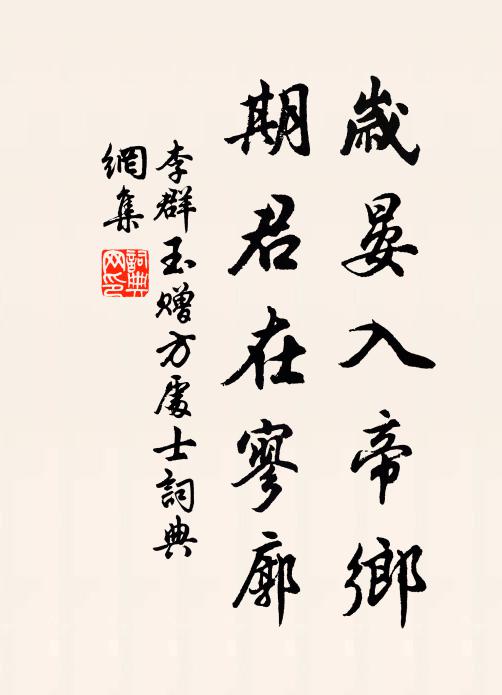 歲晏入帝鄉
期君在寥廓
李群玉赠方處士詞典
網集
詞典
网印